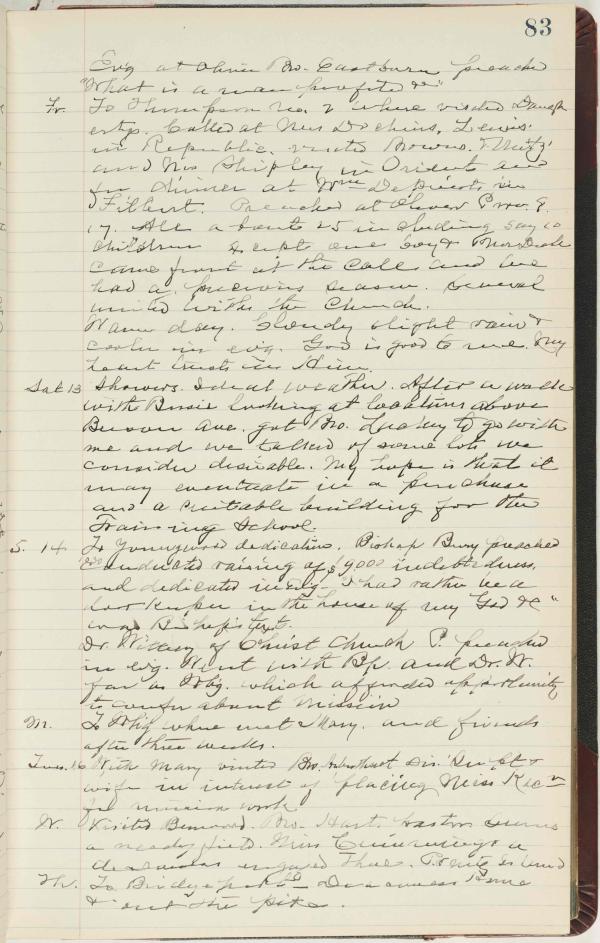 83
Ev'g at Oliver Bro. Eastburn preached
"What is a man profited &c"
Fr. To Thompson No. 2 where visited Daugh
erty. Called at Mrs Lewis'
in Republic. visited Browns,
and Mrs Shipley in Orient and
for dinner at Wm in
Filbert. Preached at Clover Prov. 8.
17. All about 25 including say 10
children except one boy & Mrs
came front at the call and we
had a precious season. Several
united with the Church.
Warm day. Cloudy slight rain &
cooler in ev'g. God is good to me. My
heart trusts in Him.
Sat 13 Showers. Ideal weather. After a walk
with Bessie looking at locations above
Ave. got Bro. to go with
me and we talked of some lots we
consider desirable. My hope is that it
may eventuate in a purchase
and a suitable building for the
Training School.
S. 14 To Youngwood dedication. Bishop Berry preached
conducted raising of $9000 indebtedness
and dedicated in ev'g. "I had rather be a
door keeper in the house of my God &c"
was Bishop's text.
Dr. of Christ Church P. preached
in ev'g. Went with Bp. and Dr. W.
far as Wbg. which afforded opportunity
to confer about Mission
M. To Whg where met Mary and friends
after three weeks.
Tues. 16 With Mary visited Bro. Dis. Supt &
wife in interest of placing Miss
for mission work
W. Visited Benwood. Bro. Hart. Pastor
a needy field. Miss Cummings a
deaconess engaged there.
Th. To Bridgeport Deaconess Home
& out the pike.